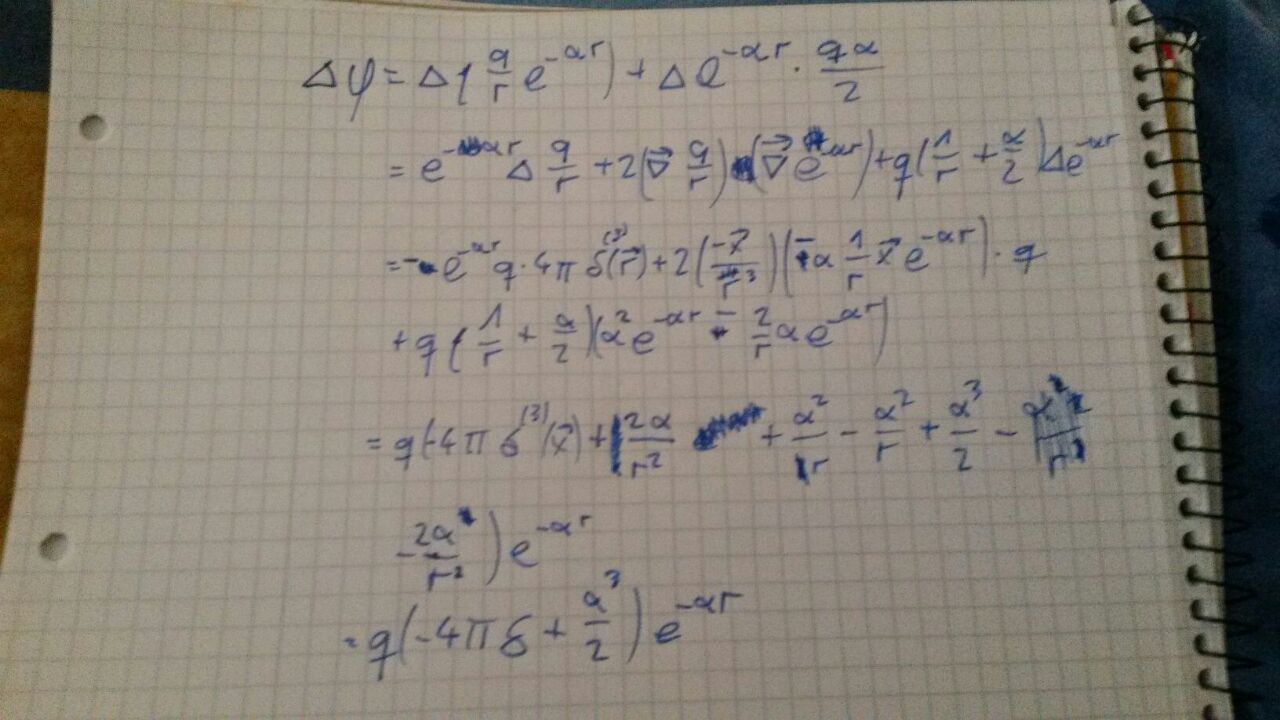 Δφ = Δ(q/r e^{-αr}) + Δe^{-αr} · qα/2
= e^{-αr} Δ q/r + 2(∇⃗ q/r) (∇⃗ e^{-αr}) + q(1/r + α/2)Δe^{-αr}
= -e^{-αr} q·4π δ^{(3)}(r⃗) + 2(-x⃗/r³)(-α 1/r x⃗ e^{-αr}) · q
+ q(1/r + α/2)(α² e^{-αr} - 2/r α e^{-αr})
= q(-4π δ^{(3)}(x⃗) + 2α/r² + α²/r - α²/r + α³/2 -
- 2α/r²) e^{-αr}
= q(-4πδ + α³/2) e^{-αr}